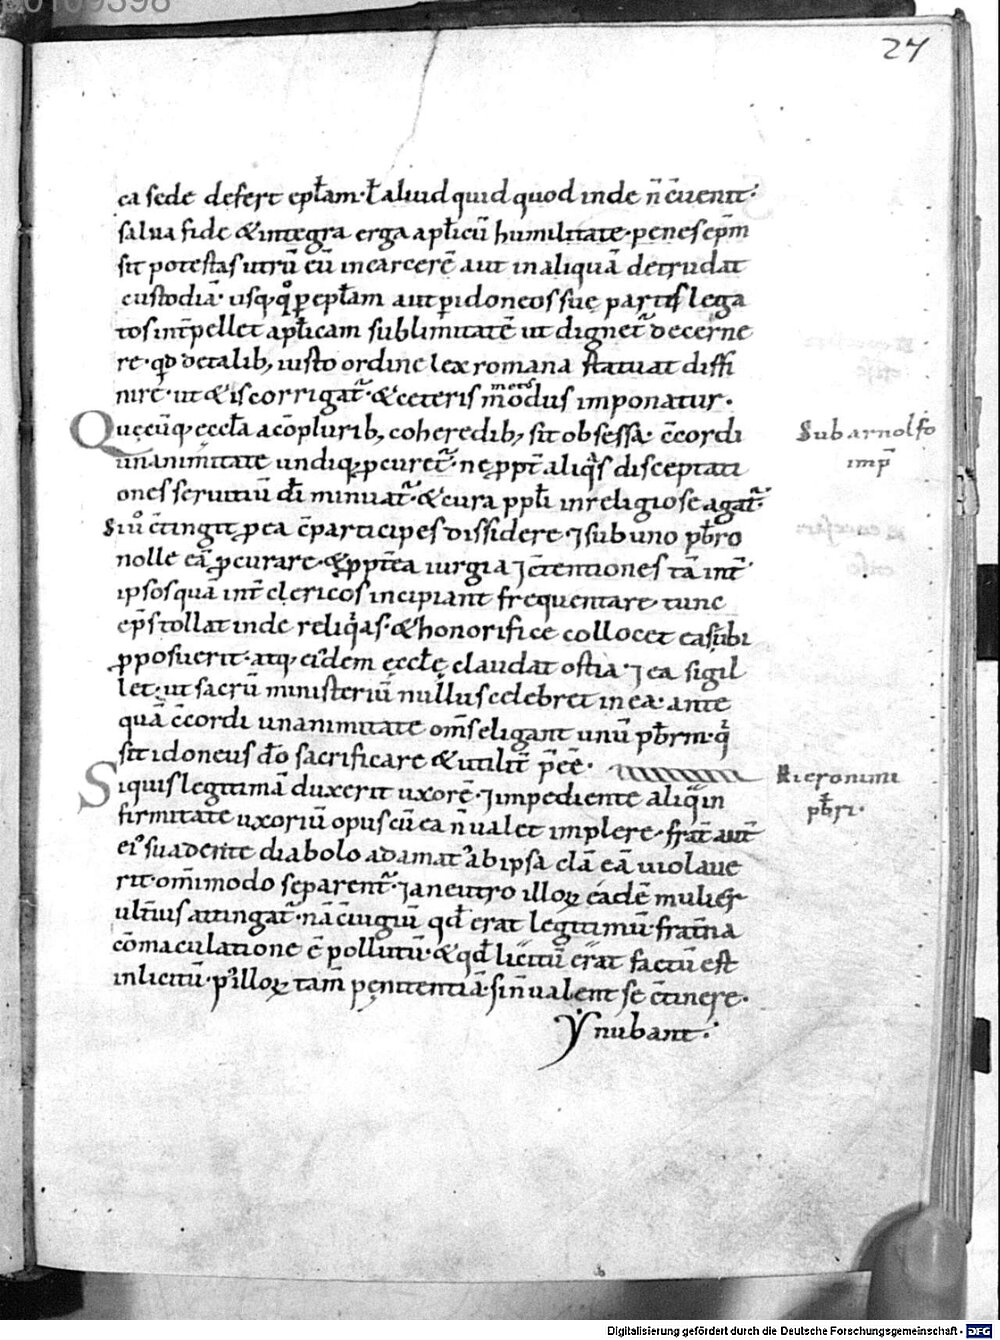 27
ea sede defert epłam· ł aliud quid quod inde n̄ c̄uenit·
salua fide & integra erga apłicū humilitate· penes ep̄m
sit potestas utrū eū in carcerē aut in aliquā detrudat
custodiā· usq; q°
 ꝑ epłam aut ꝑ idoneos suę partis lega
tos int̄pellet apłicam sublimitatē ut dignet᷑ decerne
re· qđ de talib; iusto ordine lex romana statuat diffi
nire· ut & is corrigat᷑· & ceteris modus imponatur·
metus
Quęcūq; ęccła a cōplurib; coheredib; sit obsessa· c̄cordi
unanimitate undiq; ꝓcuret᷑· ne ꝓpt̄ aliq's disceptati
ones seruitiū dī minuat᷑· & cura ppłi inreligiose agat᷑·
Si ū c̄tingit ꝓ ea c̄participes dissidere· ⁊ sub uno pb̄ro
nolle eā ꝓcurare· & ꝓpt̄ea iurgia ⁊ c̄tentiones tā int̄
ipsos quā int̄ clericos incipiant frequentare· tunc
ep̄s tollat inde reliq'as· & honorifice collocet eas· ubi
ꝓposuerit· atq; ei'dem ęccłę claudat ostia· ⁊ ea sigil
let· ut sacrū ministeriū nullus celebret in ea· ante
quā c̄cordi unanimitate om̄s eligant unū pb̄rm· q'
sit idoneus dō sacrificare & utilit̄ p̄eē·
Siquis legitimā duxerit uxorē· ⁊ impediente aliq in
firmitate uxoriū opus cū ea n̄ ualet implere· frat̄ aut̄
ei' suadente diabolo adamat' ab ipsa clā eā uiolaue
rit· om̄imodo separent᷑· ⁊ a neutro illoꝝ eadē mulier
ult̄ius attingat᷑· nā c̄iugiū qđ erat legitimū· frat̄na
cōmaculatione ē pollutū· & qđ licitū erat factū est
inlicitū· P' illoꝝ tam̄ pęnitentiā· si n̄ ualent se c̄tinere·
nubant·
Sub arnolfo
imp̄
Hieronimi
pb̄ri·
Digitalisierung gefördert durch die Deutsche Forschungsgemeinschaft - DFG